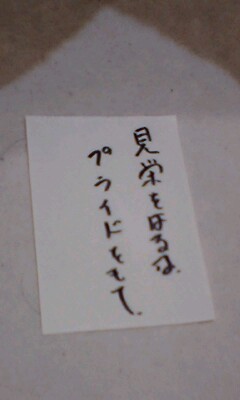 見栄をはるな。
プライドをもて。